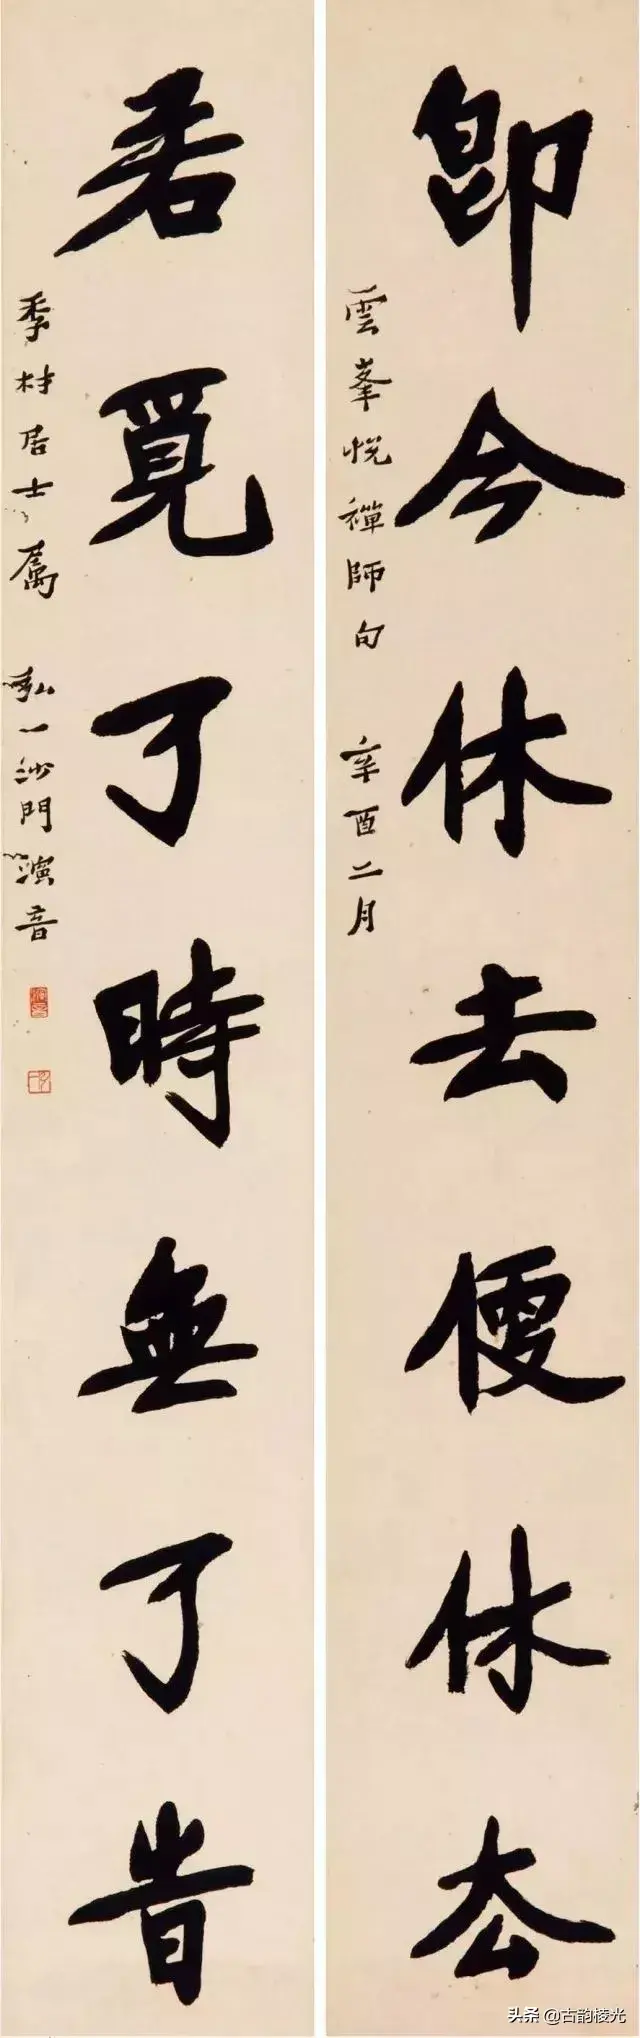 即今休去便休厺
雲峯悅禪師句 辛酉二月
若覓了時無了旹
季村居士屬 弘一沙門演音
头条 @古韵棱光